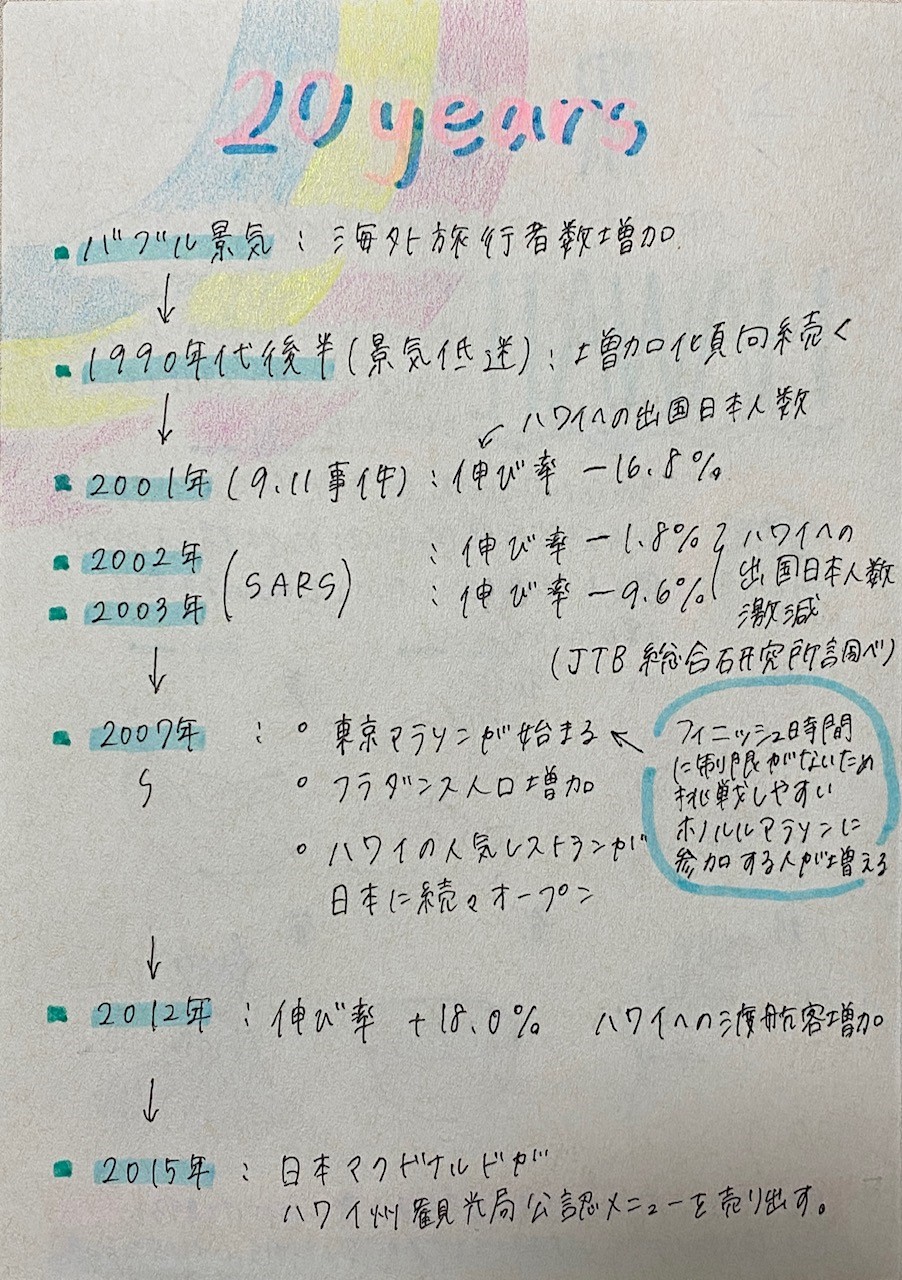 20 years
▪ バブル景気 : 海外旅行者数増加
↓
▪ 1990年代後半(景気低迷) : 増加傾向続く
↓
ハワイへの出国日本人数
▪ 2001年 (9.11事件) : 伸び率 −16.8%
▪ 2002年 (SARS) : 伸び率 −1.8%
▪ 2003年 : 伸び率 −9.6%
ハワイへの
出国日本人数
激減
(JTB総合研究所調べ)
↓
▪ 2007年 : ○ 東京マラソンが始まる
○ フラダンス人口増加
○ ハワイの人気レストランが
日本に続々オープン
フィニッシュ時間
に制限がないため
挑戦しやすい
ホノルルマラソンに
参加する人が増える
↓
▪ 2012年 : 伸び率 +18.0% ハワイへの渡航客増加
↓
▪ 2015年 : 日本マクドナルドが
ハワイ州観光局公認メニューを売り出す。